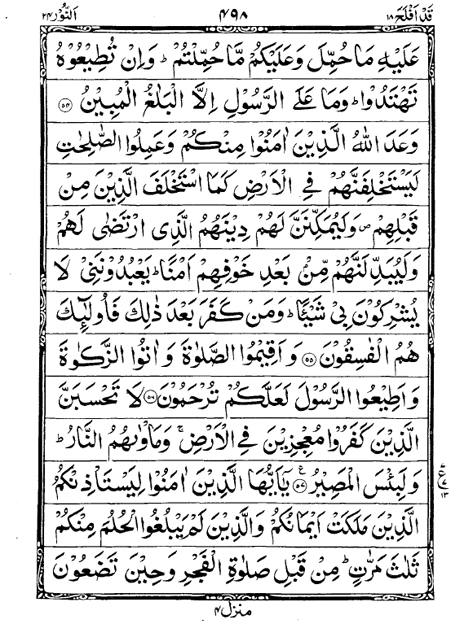 قَدْ اَفْلَحَ ١٨ ٤٩٨ اَلنُّوْر ٢٤
عَلَيْهِ مَا حُمِّلَ وَعَلَيْكُمْ مَّا حُمِّلْتُمْ ؕ وَاِنْ تُطِيْعُوْهُ
تَهْتَدُوْا ؕ وَمَا عَلَى الرَّسُوْلِ اِلَّا الْبَلٰغُ الْمُبِيْنُ ﴿۵۴﴾
وَعَدَ اللّٰهُ الَّذِيْنَ اٰمَنُوْا مِنْكُمْ وَعَمِلُوا الصّٰلِحٰتِ
لَيَسْتَخْلِفَنَّهُمْ فِى الْاَرْضِ كَمَا اسْتَخْلَفَ الَّذِيْنَ مِنْ
قَبْلِهِمْ ۪ وَلَيُمَكِّنَنَّ لَهُمْ دِيْنَهُمُ الَّذِى ارْتَضٰى لَهُمْ
وَلَيُبَدِّلَنَّهُمْ مِّنْۢ بَعْدِ خَوْفِهِمْ اَمْنًا ؕ يَعْبُدُوْنَنِىْ لَا
يُشْرِكُوْنَ بِىْ شَيْئًا ؕ وَمَنْ كَفَرَ بَعْدَ ذٰلِكَ فَاُولٰٓئِكَ
هُمُ الْفٰسِقُوْنَ ﴿۵۵﴾ وَاَقِيْمُوا الصَّلٰوةَ وَاٰتُوا الزَّكٰوةَ
وَاَطِيْعُوا الرَّسُوْلَ لَعَلَّكُمْ تُرْحَمُوْنَ ﴿۵۶﴾ لَا تَحْسَبَنَّ
الَّذِيْنَ كَفَرُوْا مُعْجِزِيْنَ فِى الْاَرْضِ ۚ وَمَاْوٰىهُمُ النَّارُ ؕ
وَلَبِئْسَ الْمَصِيْرُ ﴿۵۷﴾ ع يٰۤاَيُّهَا الَّذِيْنَ اٰمَنُوْا لِيَسْتَاْذِنْكُمُ
الَّذِيْنَ مَلَكَتْ اَيْمَانُكُمْ وَالَّذِيْنَ لَمْ يَبْلُغُوا الْحُلُمَ مِنْكُمْ
ثَلٰثَ مَرّٰتٍ ؕ مِنْ قَبْلِ صَلٰوةِ الْفَجْرِ وَحِيْنَ تَضَعُوْنَ
منزل ۴